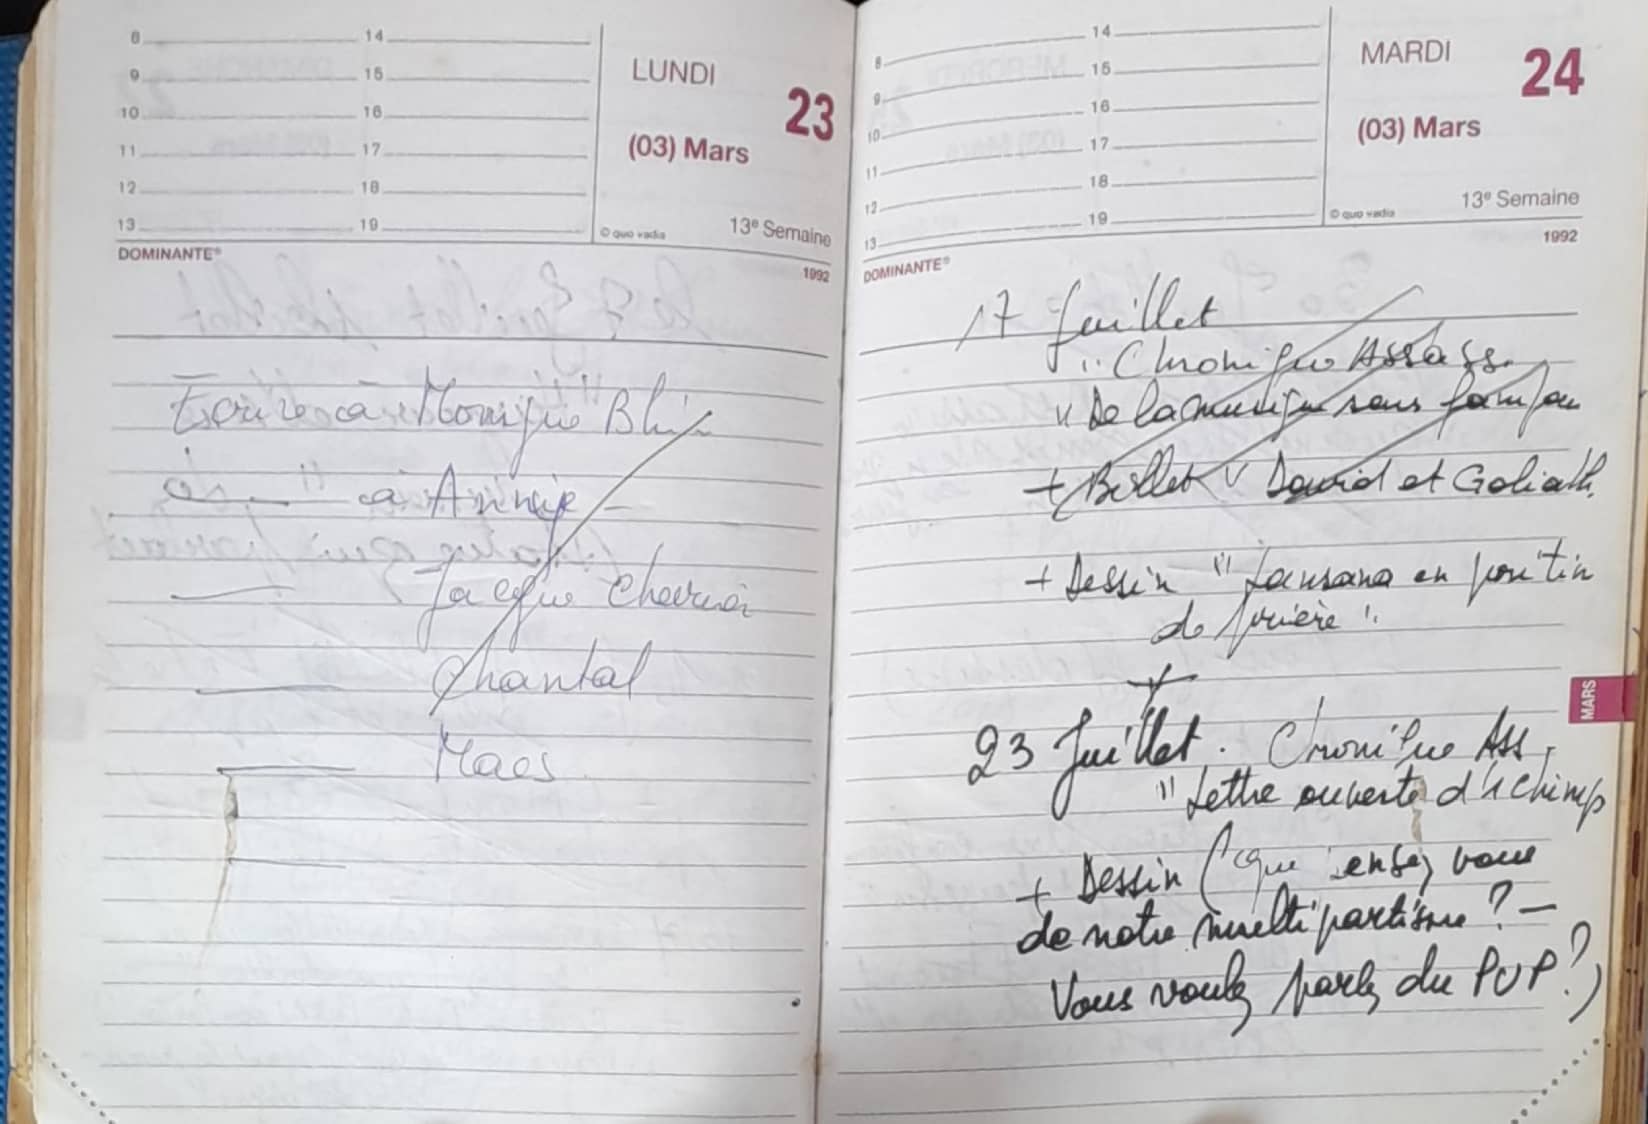 8 14
9 15
10 16
11 17
12 18
13 19
LUNDI
23
(03) Mars
© quo vadis
13e Semaine
DOMINANTE®
1992
Ecrire à Monique Blin
do — " — à Annie —
Jacque Chevrier
Chantal
Maes
8 14
9 15
10 16
11 17
12 18
13 19
MARDI
24
(03) Mars
© quo vadis
13e Semaine
DOMINANTE®
1992
MARS
17 Juillet
" Chronique Assass.
" De la musique sous
+ Billet " David et Goliath
+ Dessin " en
de prière ".
+
23 Juillet. Chronique Ass.
" Lettre ouverte d'1 chimp
+ Dessin (que pensez vous
de notre multipartisme ? —
Vous voulez parlez du PUP ?)